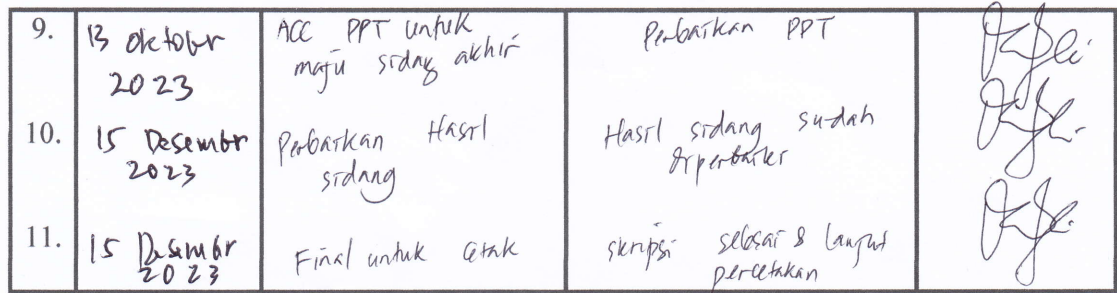 9. 13 Oktober 2023 ACC PPT untuk maju sidang akhir Perbaikan PPT
10. 15 Desember 2023 Perbaikan Hasil sidang Hasil sidang sudah diperbaiki
11. 15 Desember 2023 Final untuk cetak skripsi selesai & lanjut percetakan